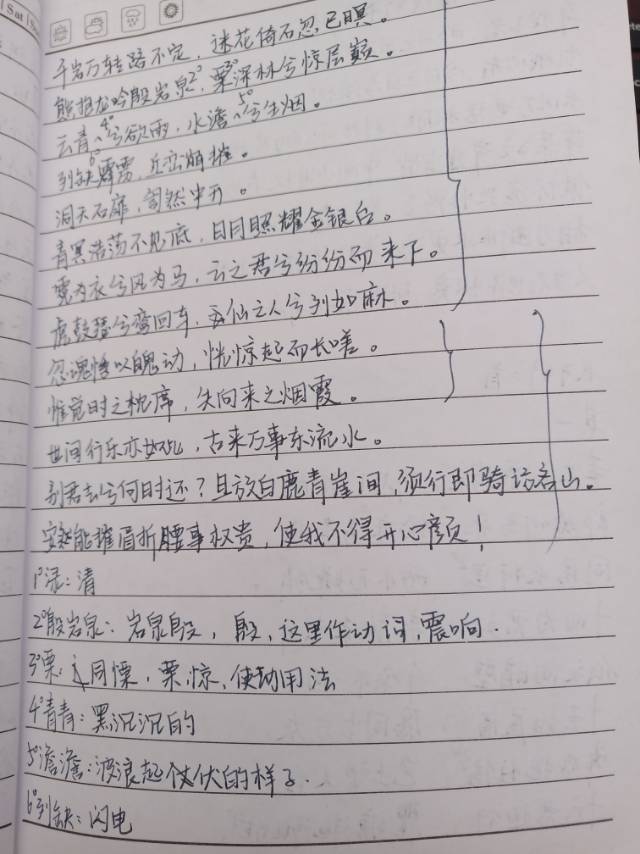 Sat
千岩万转路不定，迷花倚石忽已暝。
熊咆龙吟殷岩泉2°，栗3°深林兮惊层巅。
云青々4°兮欲雨，水澹々5°兮生烟。
列缺6°霹雳，丘峦崩摧。
洞天石扉，訇然中开。
青冥浩荡不见底，日月照耀金银台。
霓为衣兮风为马，云之君兮纷纷而来下。
虎鼓瑟兮鸾回车，仙之人兮列如麻。
忽魂悸以魄动，恍惊起而长嗟。
惟觉时之枕席，失向来之烟霞。
世间行乐亦如此，古来万事东流水。
别君去兮何时还？且放白鹿青崖间，须行即骑访名山。
安能摧眉折腰事权贵，使我不得开心颜！
1°渌：清
2°殷岩泉：岩泉殷，殷，这里作动词，震响．
3°栗：同慄，栗惊，使动用法
4°青青：黑沉沉的
5°澹澹：波浪起伏的样子．
6°列缺：闪电